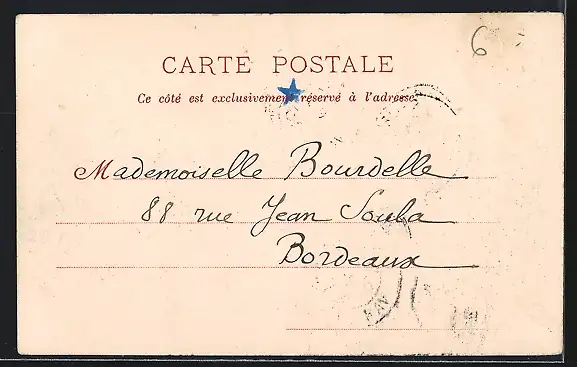 6
CARTE POSTALE
Ce côté est exclusivement réservé à l'adresse.
Mademoiselle Bourdelle
88 rue Jean Soula
Bordeaux